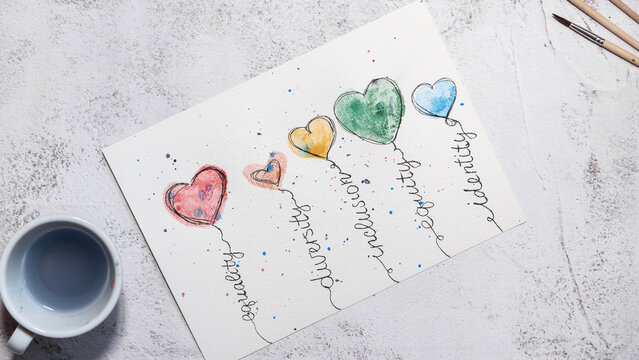 equality
diversity
inclusion
equity
identity